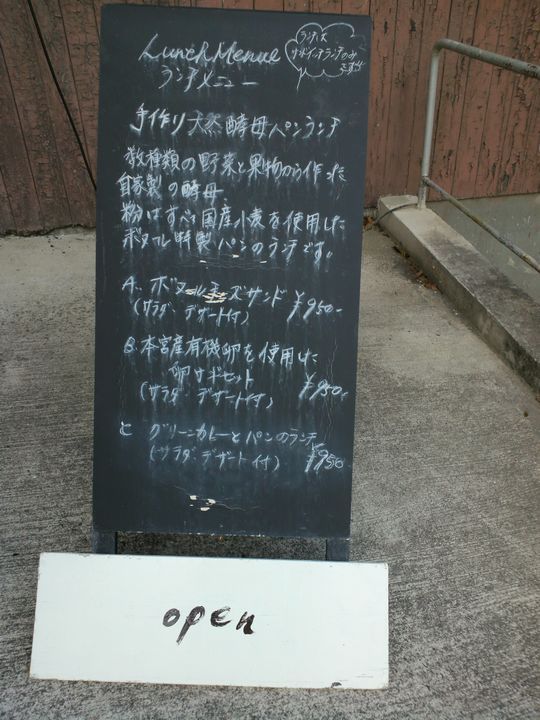 Lunch Menue
ランチメニュー
ランチは
サンドイッチランチのみ
です!!
手作り天然酵母パンランチ
数種類の野菜と果物から作った
自家製の酵母
粉はすべて国産小麦を使用した
特製パンのランチです。
A. ズサンド ¥950-
(サラダ、デザート付)
B. 本宮産有機卵を使用した
卵サンドセット ¥950-
(サラダ デザート付)
C グリーンカレーとパンのランチ
(サラダ、デザート付) ¥950
open